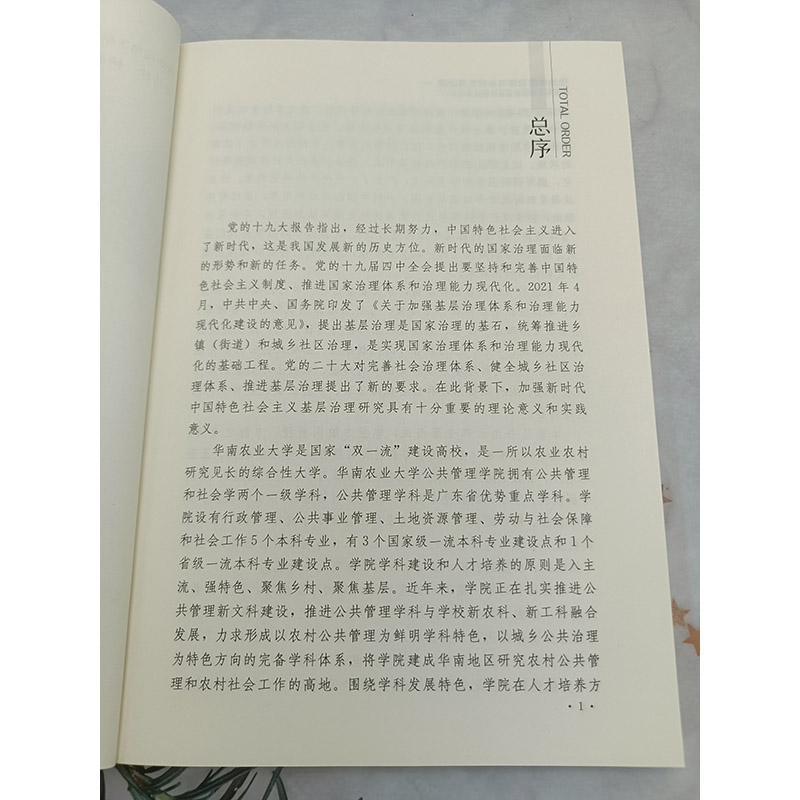 总序
TOTAL ORDER
党的十九大报告指出，经过长期努力，中国特色社会主义进入
了新时代，这是我国发展新的历史方位。新时代的国家治理面临新
的形势和新的任务。党的十九届四中全会提出要坚持和完善中国特
色社会主义制度、推进国家治理体系和治理能力现代化。2021 年 4
月，中共中央、国务院印发了《关于加强基层治理体系和治理能力
现代化建设的意见》，提出基层治理是国家治理的基石，统筹推进乡
镇（街道）和城乡社区治理，是实现国家治理体系和治理能力现代
化的基础工程。党的二十大对完善社会治理体系、健全城乡社区治
理体系、推进基层治理提出了新的要求。在此背景下，加强新时代
中国特色社会主义基层治理研究具有十分重要的理论意义和实践
意义。
华南农业大学是国家“双一流”建设高校，是一所以农业农村
研究见长的综合性大学。华南农业大学公共管理学院拥有公共管理
和社会学两个一级学科，公共管理学科是广东省优势重点学科。学
院设有行政管理、公共事业管理、土地资源管理、劳动与社会保障
和社会工作 5 个本科专业，有 3 个国家级一流本科专业建设点和 1 个
省级一流本科专业建设点。学院学科建设和人才培养的原则是入主
流、强特色、聚焦乡村、聚焦基层。近年来，学院正在扎实推进公
共管理新文科建设，推进公共管理学科与学校新农科、新工科融合
发展，力求形成以农村公共管理为鲜明学科特色，以城乡公共治理
为特色方向的完备学科体系，将学院建成华南地区研究农村公共管
理和农村社会工作的高地。围绕学科发展特色，学院在人才培养方
· 1 ·